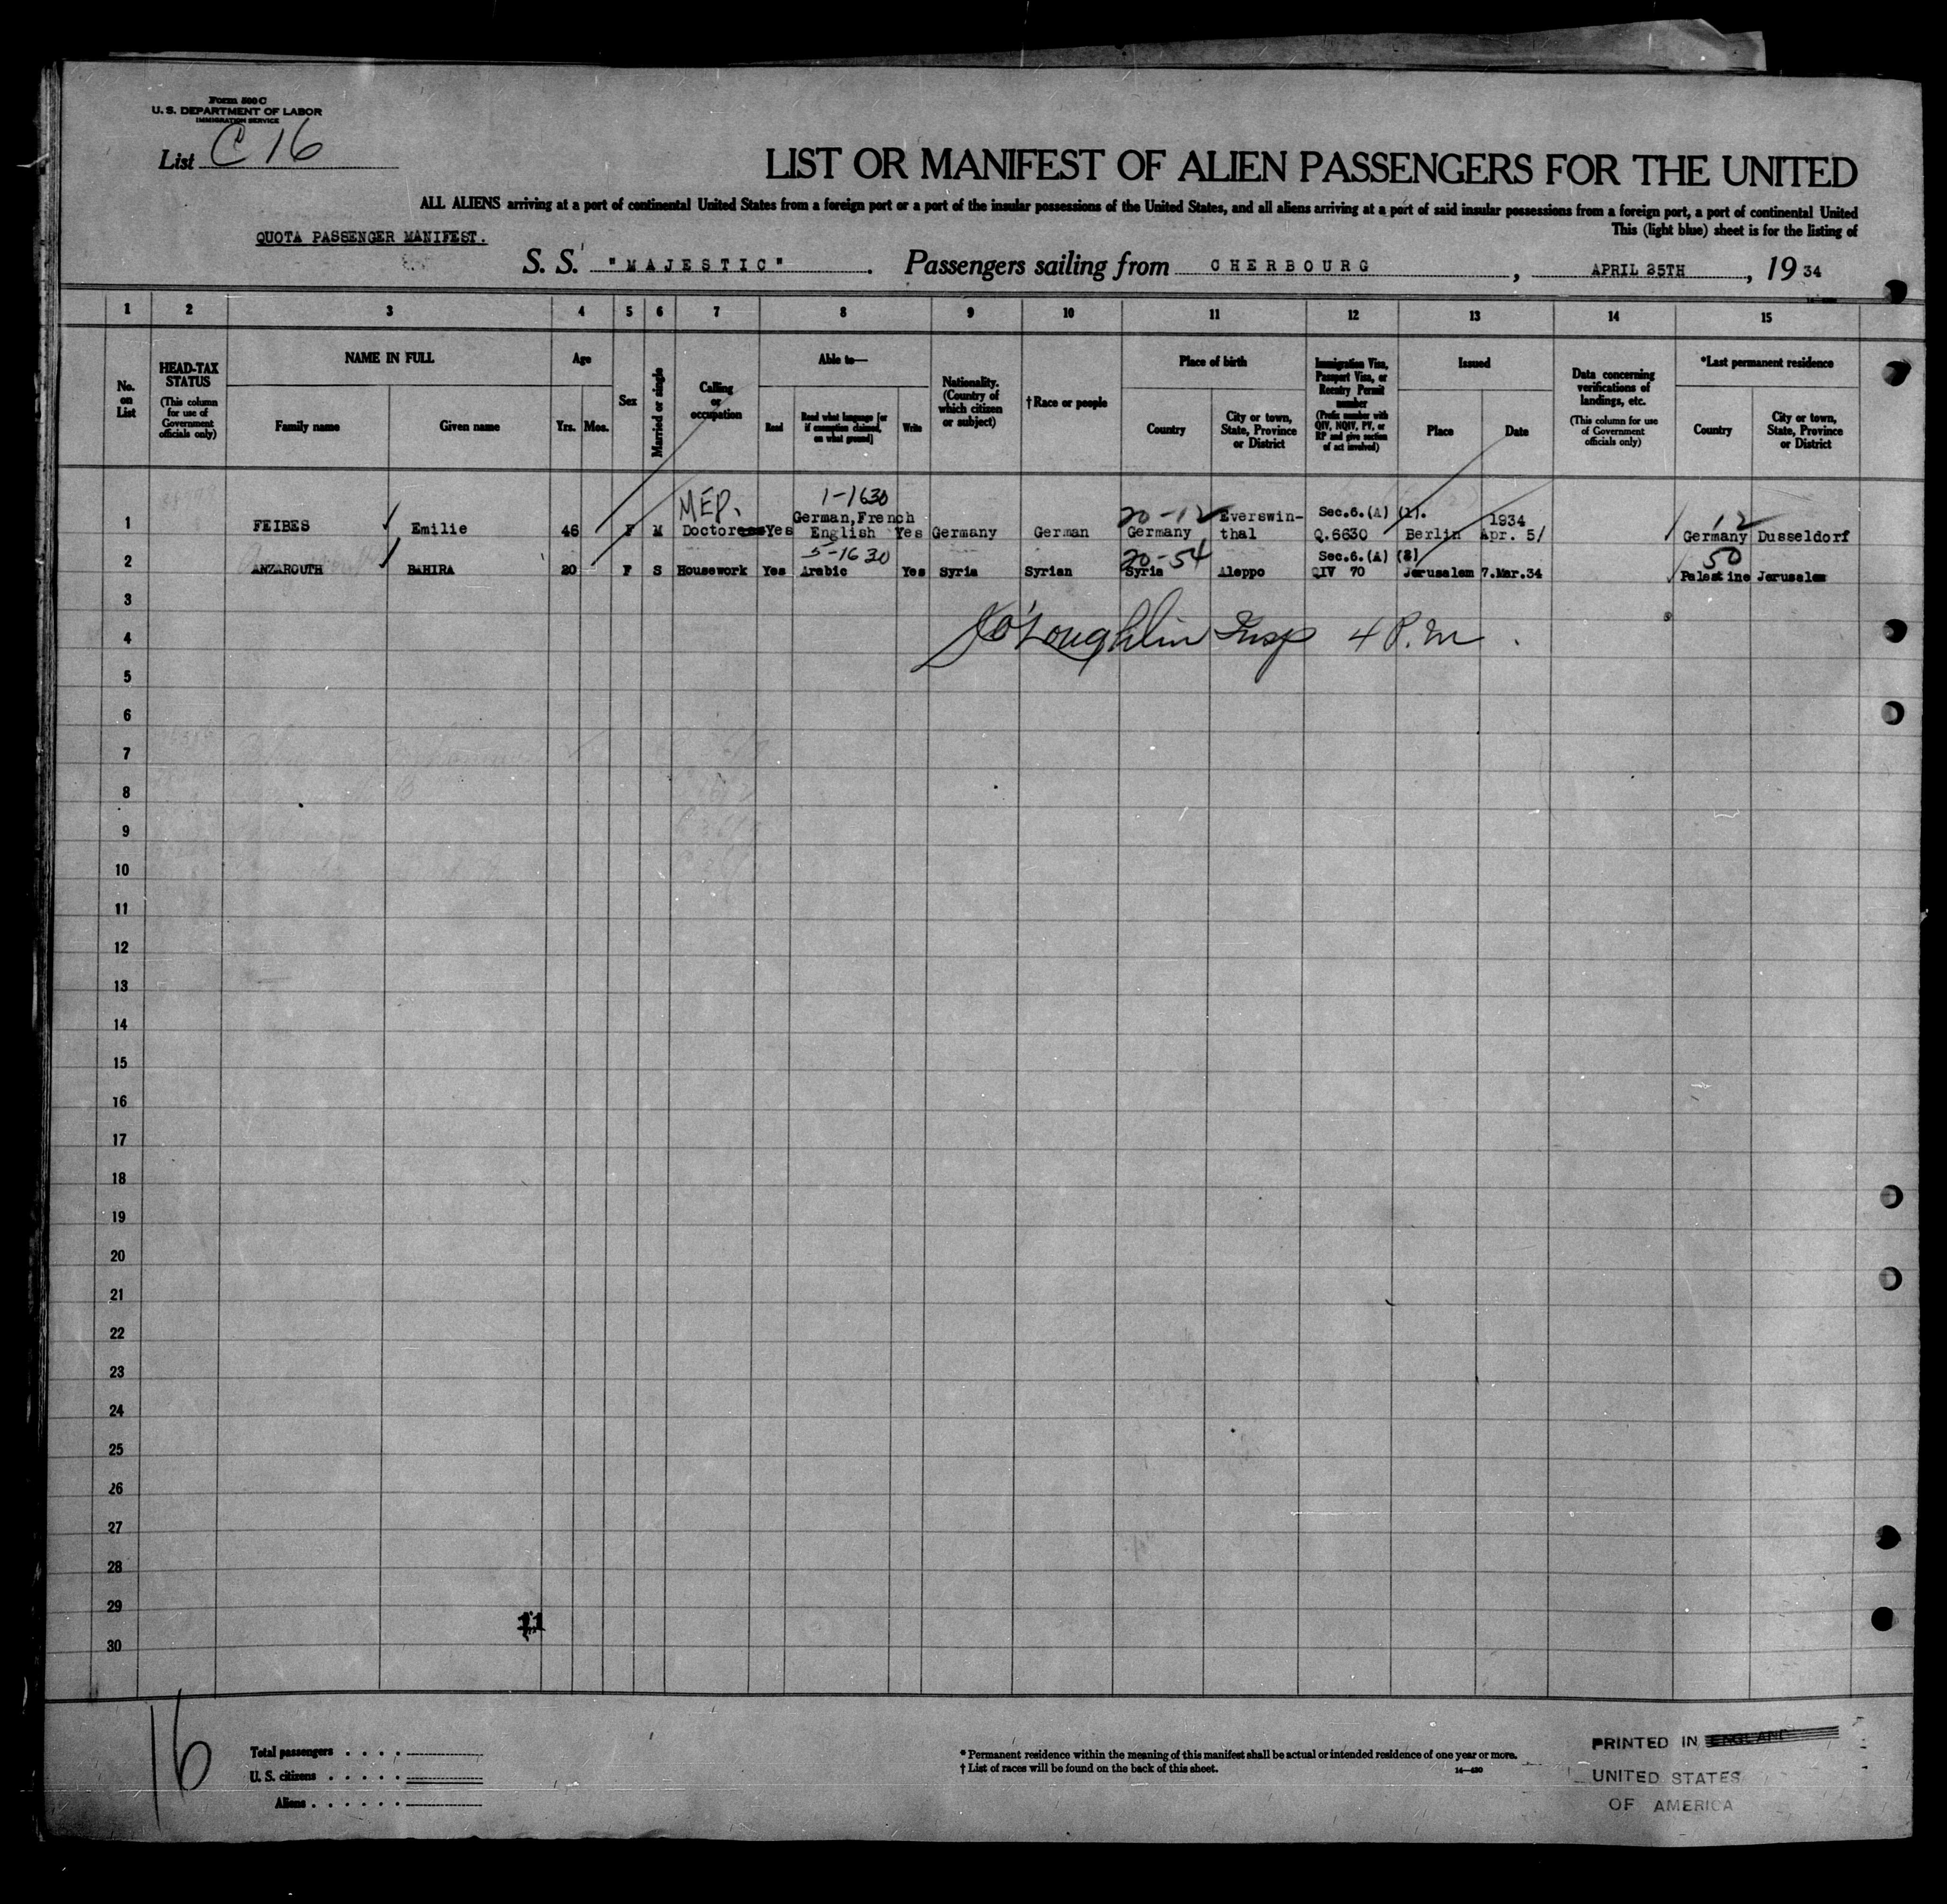 Form 500 C
U. S. DEPARTMENT OF LABOR
IMMIGRATION SERVICE
List C 16
LIST OR MANIFEST OF ALIEN PASSENGERS FOR THE UNITED
ALL ALIENS arriving at a port of continental United States from a foreign port or a port of the insular possessions of the United States, and all aliens arriving at a port of said insular possessions from a foreign port, a port of continental United
This (light blue) sheet is for the listing of
QUOTA PASSENGER MANIFEST.
S. S. "MAJESTIC" Passengers sailing from CHERBOURG, APRIL 25TH, 19 34
1 2 3 4 5 6 7 8 9 10 11 12 13 14 15
No. on List
HEAD-TAX STATUS (This column for use of Government officials only)
NAME IN FULL Family name Given name
Age Yrs. Mos.
Sex
Married or single
Calling or occupation
Able to— Read Read what language [or if exemption claimed, on what ground] Write
Nationality. (Country of which citizen or subject)
†Race or people
Place of birth Country City or town, State, Province or District
Immigration Visa, Passport Visa, or Reentry Permit number (Prefix number with QIV, NQIV, PV, or RP and give section of act involved)
Issued Place Date
Data concerning verifications of landings, etc. (This column for use of Government officials only)
*Last permanent residence Country City or town, State, Province or District
MED. 1-1630 20-12 Everswin- Sec.6.(A) (1). 1934 12
German, French
1 FEIBES Emilie 46 F M Doctoress Yes English Yes Germany German Germany thal Q.6630 Berlin Apr. 5/ Germany Dusseldorf
5-1630 20-54 Sec.6.(A) (3) 50
2 ANZAROUTH BAHIRA 20 F S Housework Yes Arabic Yes Syria Syrian Syria Aleppo QIV 70 Jerusalem 7.Mar.34 Palestine Jerusalem
3
4 O'Loughlin Insp 4 P.M.
5
6
7
8
9
10
11
12
13
14
15
16
17
18
19
20
21
22
23
24
25
26
27
28
29
11
30
16
Total passengers
U. S. citizens
Aliens
* Permanent residence within the meaning of this manifest shall be actual or intended residence of one year or more.
† List of races will be found on the back of this sheet.
14—430
PRINTED IN ENGLAND
UNITED STATES
OF AMERICA